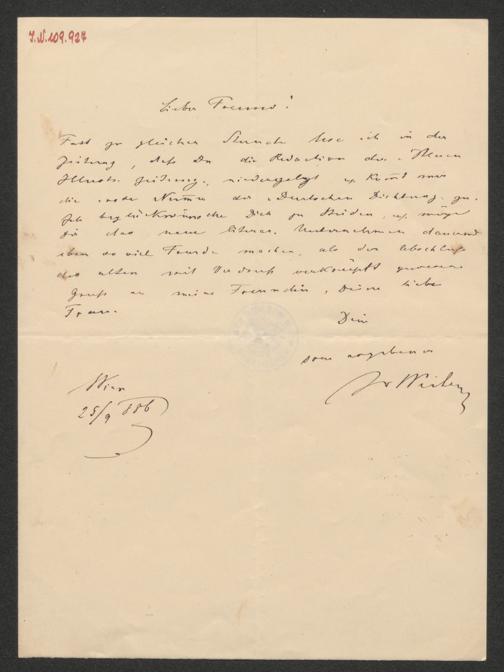 J.N. 109.927
Lieber Freund!
Fast zu gleicher Stunde lese ich in der
Zeitung, daß Du die Redaction der "Neuen
Illustr. Zeitung" niedergelegt u. kommt mir
die erste Numm der "Deutschen Dichtung" zu.
Ich beglückwünsche Dich zu Beiden, u. möge
Dir das neue literar. Unternehmen dauernd
eben so viel Freude machen, als der Abschluß
des alten mit Verdruß verknüpft gewesen
Gruß an meine Freundin, Deine liebe
Frau.
Dein
ergebener
Wien
25/9 886